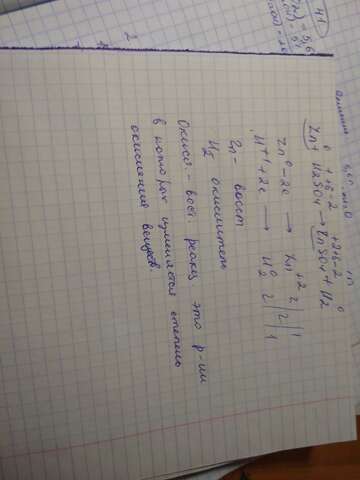 Zn + H2SO4 → ZnSO4 + H2
Zn0 - 2e → Zn+2 2 | 2 | 1
H+1 + 2e → H02 2 | 2 | 1
Zn - восст
H2 окислитель
Окисл. - вост. реакц это р-ии
в которых изменяется степень
окисления веществ.